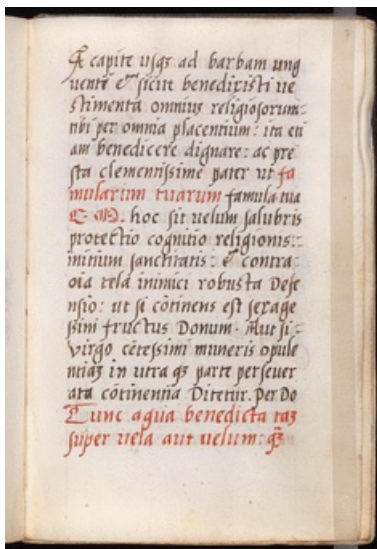 A capite usq3 ad barbam ung
uente et sicut benedixisti ve
stimenta omnium religiosorum:
tibi per omnia placentium: ita eti
am benedicere dignare: ac pre
sta clementissime pater ut fa
mularum tuarum famula tua
hoc sit velum salubris
protectio cognitio religionis:
initium sanctitatis: et contra
oīa tela inimici robusta Defe
nsio: ut si cōtinens est sexage
ssini fructus Donum. Aut si
virgo cētessimi muneris opule
ntia3 in utra q3 parte persever
ata cōtinentia Ditetur. Per Do
Tunc aqua benedicta
super vela aut velum: